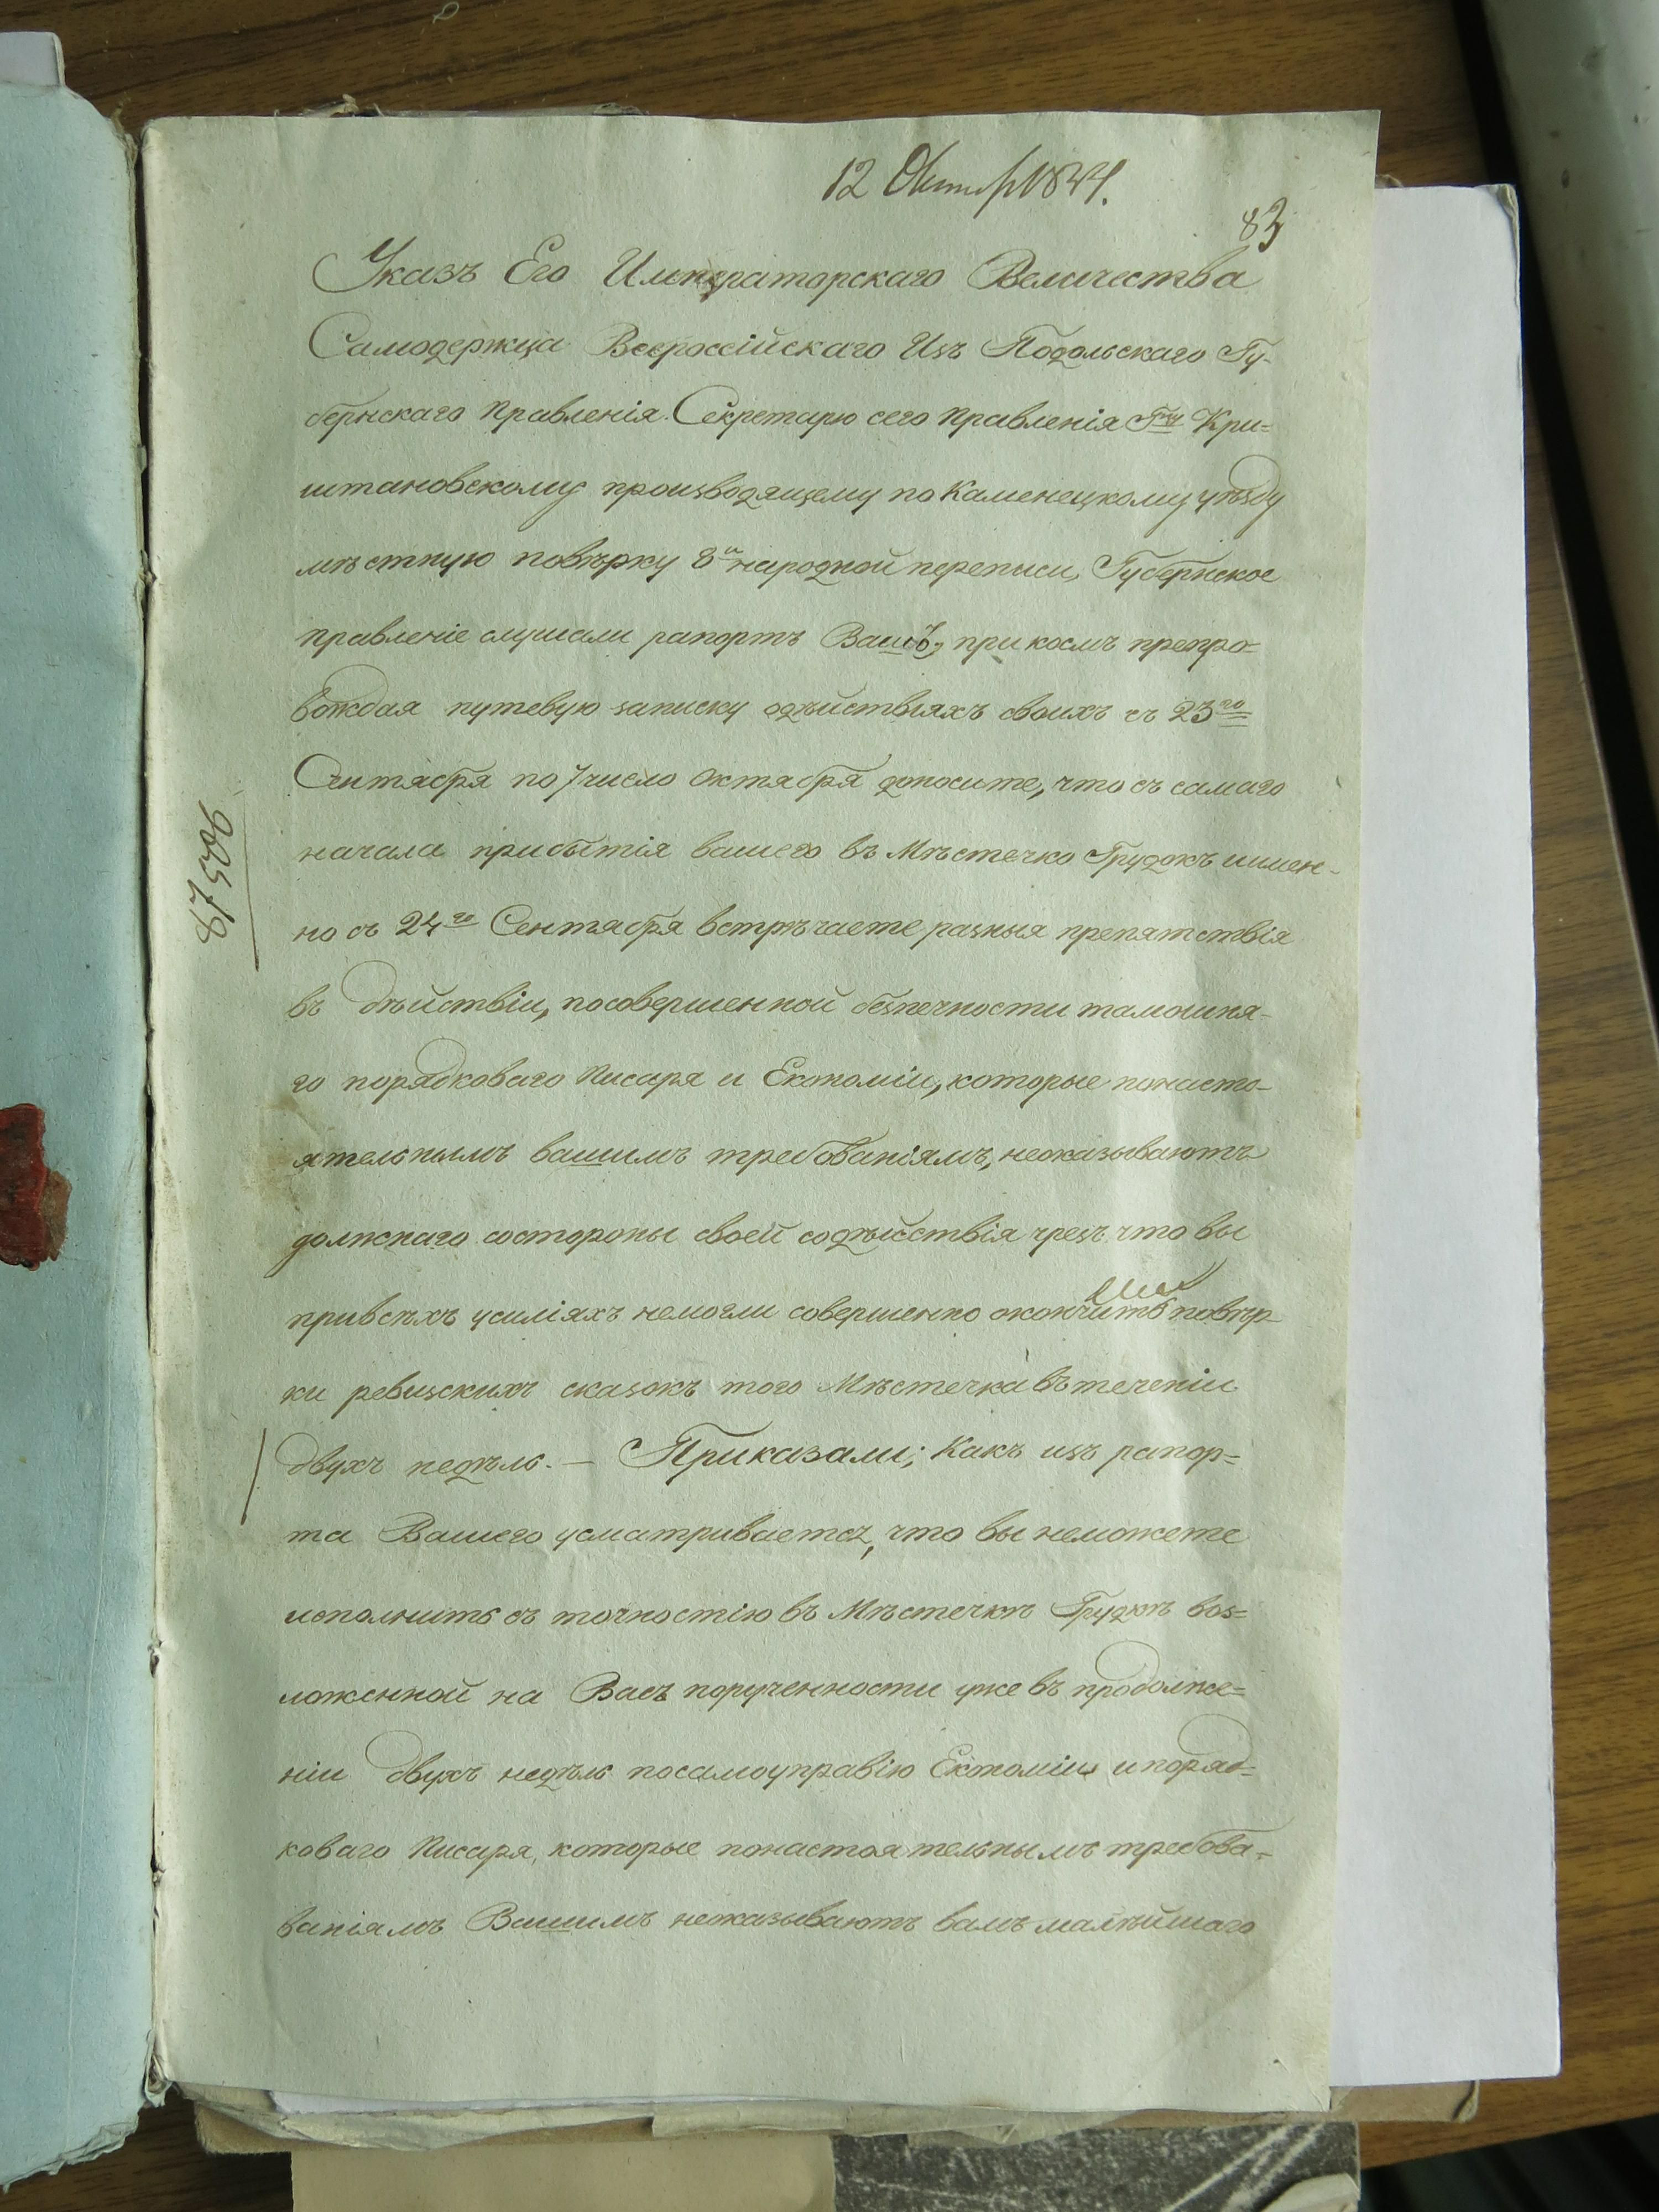 12 Октяб 1834.
83
Указъ Его Императорскаго Величества
Самодержца Всероссійскаго Изъ Подольскаго Гу-
бернскаго Правленія. Секретарю сего Правленія Гну Кри=
штановскому производящему по Каменецкому уѣзду
мѣстную повѣрку 8й народной переписи, Губернское
Правленіе слушали рапортъ Вашъ, при коемъ препро=
вождая путевую записку одѣйствіяхъ своихъ съ 23го
Сентября по 7 число Октября доносите, что съ самаго
начала прибытія вашего въ Мѣстечко Грудокъ имен-
но съ 24го Сентября встрѣчаете разныя препятствія
въ дѣйствіи, посовершенной безпечности тамошня-
го порядковаго Писаря и Економіи, которые понасто-
ятельнымъ вашимъ требованіямъ, неоказываютъ
должнаго состороны своей содѣйствія чрезъ что вы
привсѣхъ усиліяхъ немогли совершенно окончить повѣр-
ки ревизскихъ сказокъ того Мѣстечка въ теченіи
двухъ недѣль. — Приказали; Какъ изъ рапор=
та Вашего усматривается, что вы неможете
исполнить съ точностію въ Мѣстечкѣ Грудкѣ воз=
ложенной на Васъ порученности уже въ продолже=
ніи двухъ недѣль посамоуправію Економіи и поряд=
коваго Писаря, которые понастоятельнымъ требова-
ваніямъ Вашимъ неоказываютъ вамъ малѣйшаго